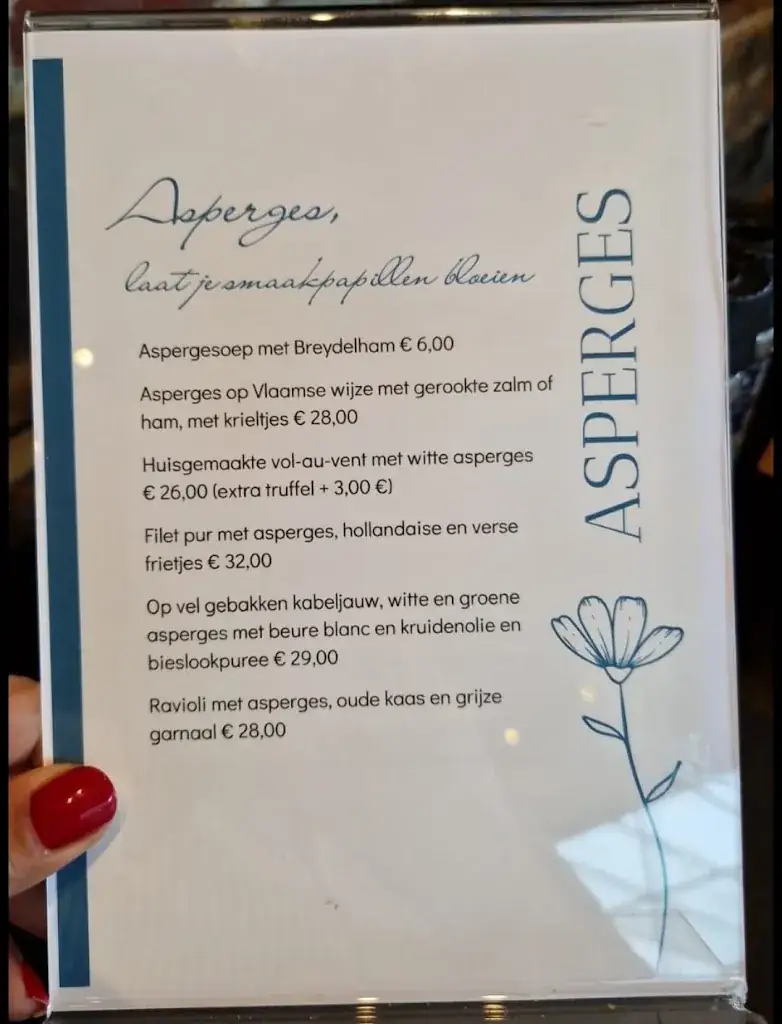 Asperges,
laat je smaakpapillen bloeien
Aspergesoep met Breydelham € 6,00
Asperges op Vlaamse wijze met gerookte zalm of
ham, met krieltjes € 28,00
Huisgemaakte vol-au-vent met witte asperges
€ 26,00 (extra truffel + 3,00 €)
Filet pur met asperges, hollandaise en verse
frietjes € 32,00
Op vel gebakken kabeljauw, witte en groene
asperges met beure blanc en kruidenolie en
bieslookpuree € 29,00
Ravioli met asperges, oude kaas en grijze
garnaal € 28,00
ASPERGES